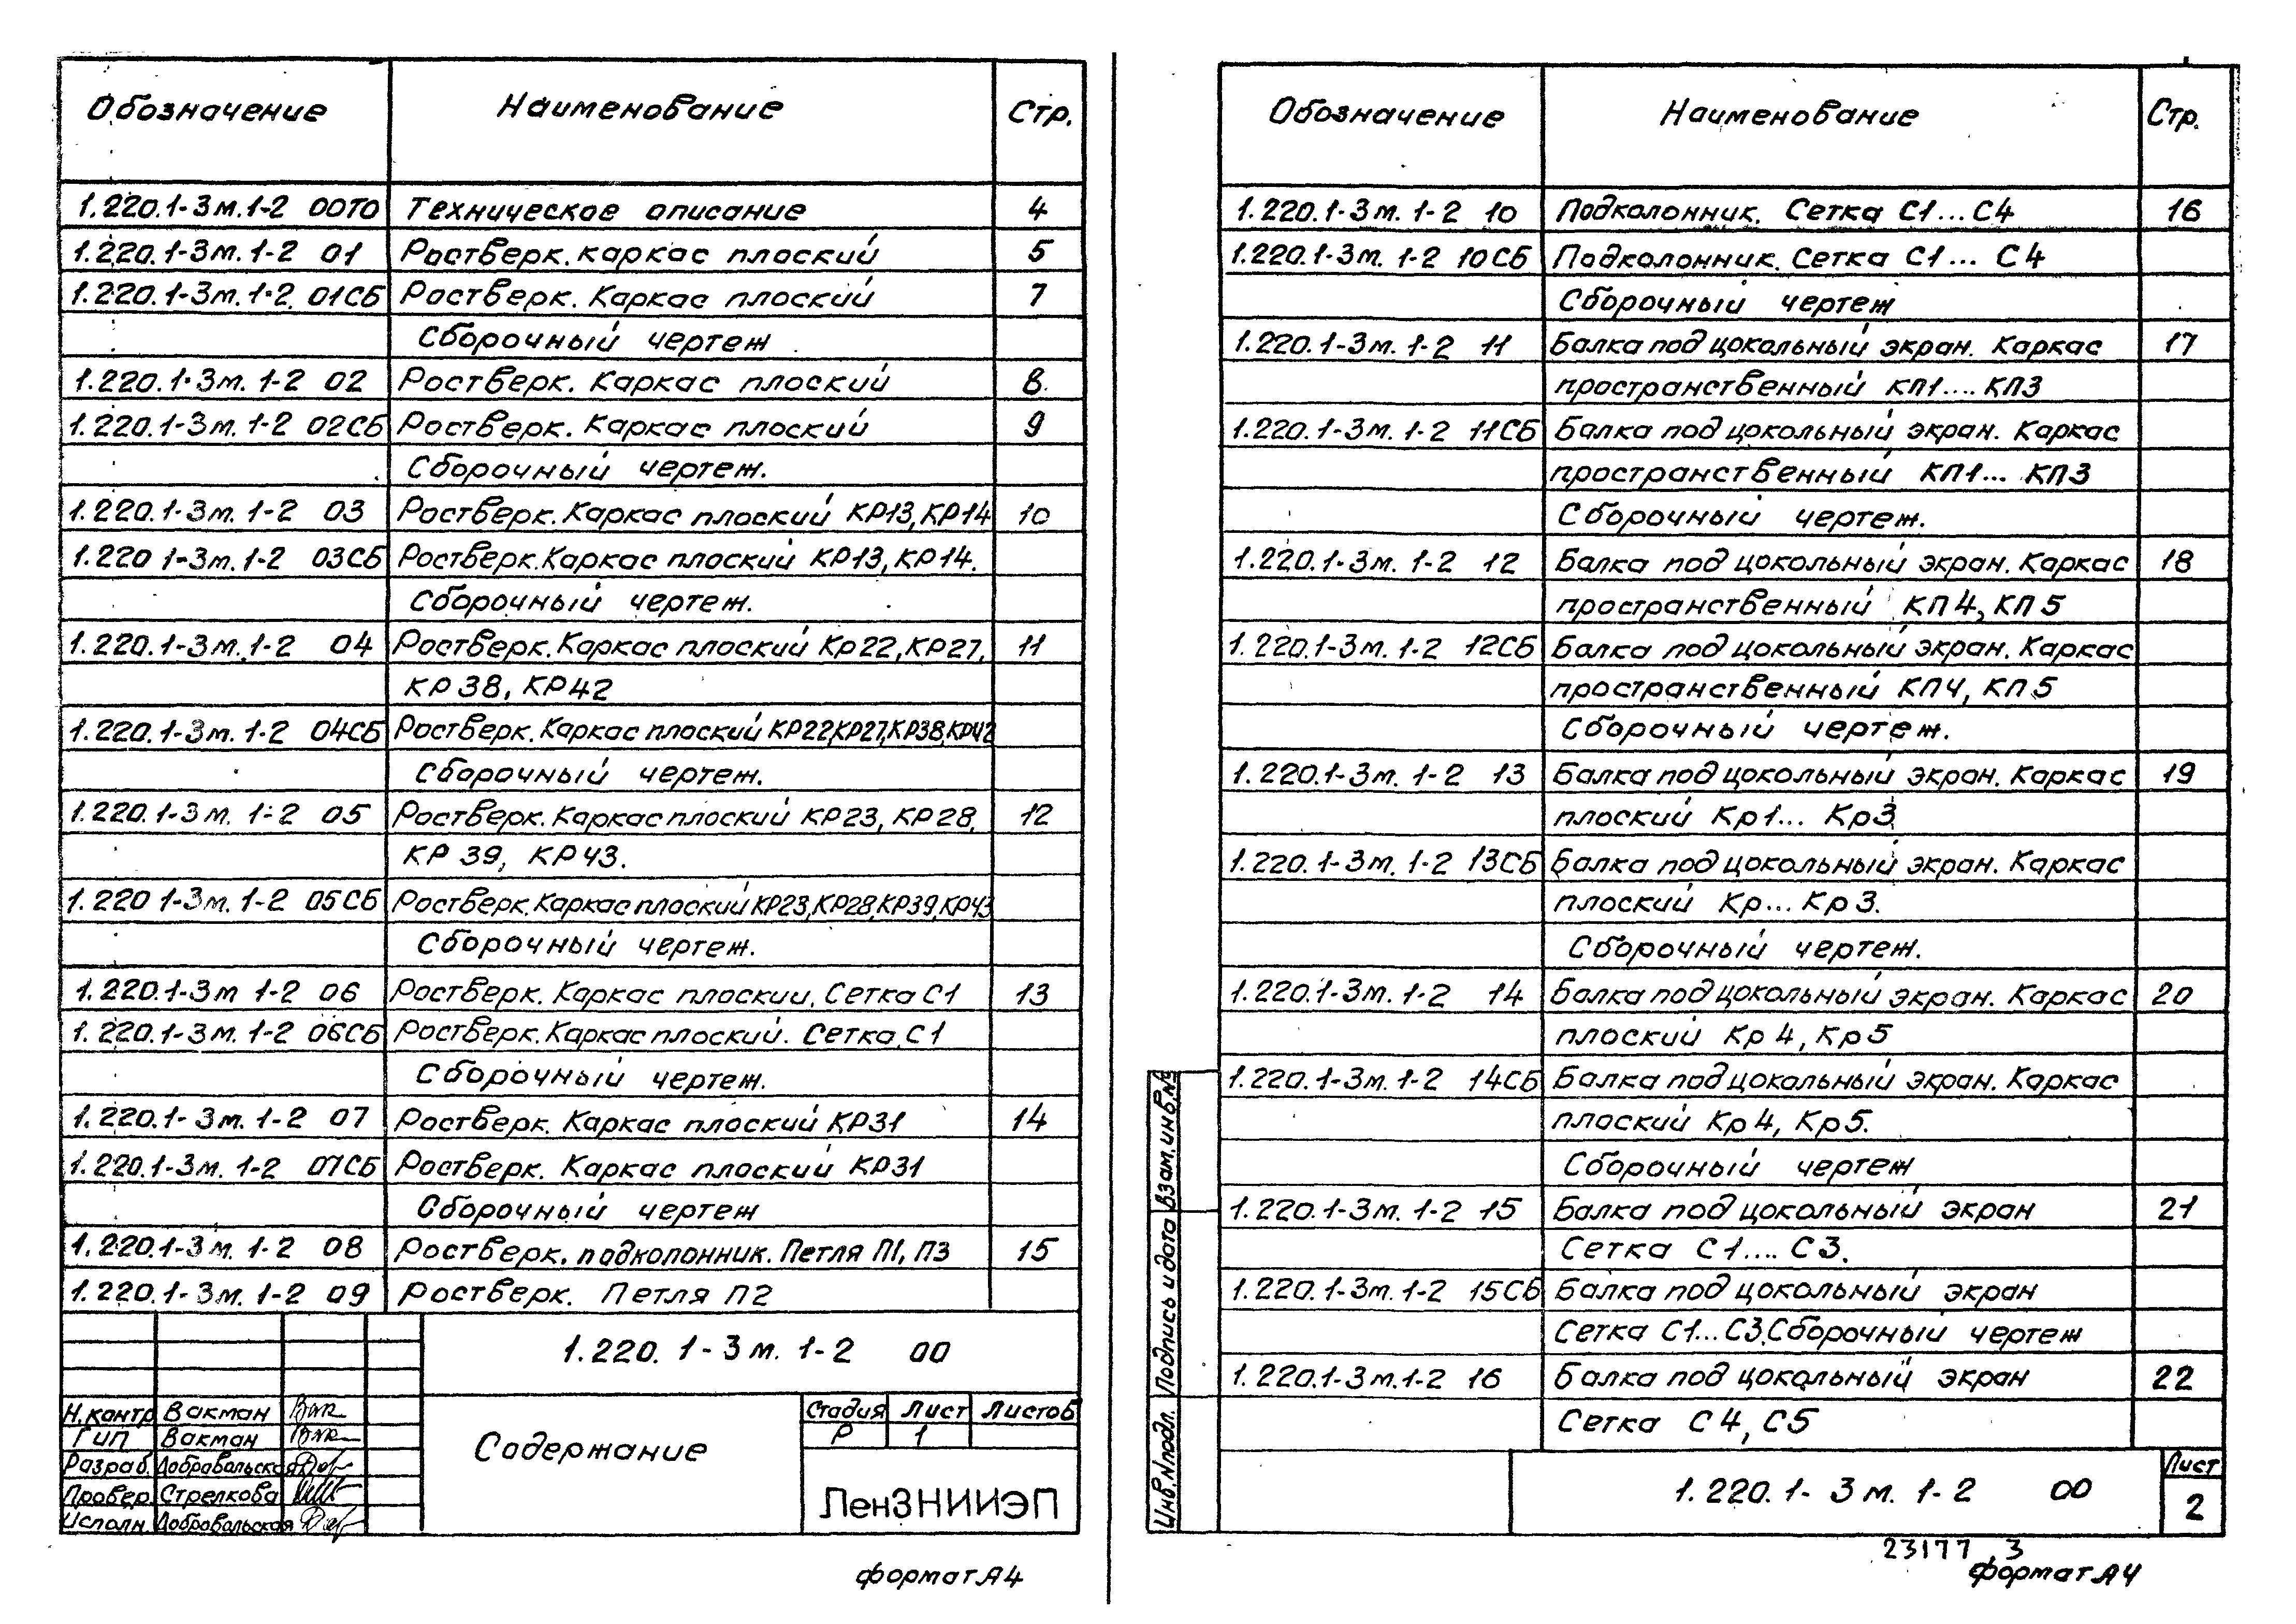 Обозначение Наименование Стр.
1.220.1-3м.1-2 00ТО Техническое описание 4
1.220.1-3м.1-2 01 Ростверк. каркас плоский 5
1.220.1-3м.1-2. 01СБ Ростверк. Каркас плоский 7
Сборочный чертеж
1.220.1-3м.1-2 02 Ростверк. Каркас плоский 8
1.220.1-3м.1-2 02СБ Ростверк. Каркас плоский 9
Сборочный чертеж.
1.220.1-3м.1-2 03 Ростверк. Каркас плоский КР13, КР14 10
1.220 1-3м.1-2 03СБ Ростверк. Каркас плоский КР13, КР14.
Сборочный чертеж.
1.220.1-3м.1-2 04 Ростверк. Каркас плоский Кр22, КР27, 11
КР38, КР42
1.220.1-3м.1-2 04СБ Ростверк. Каркас плоский КР22,КР27,КР38,КР42
Сборочный чертеж.
1.220.1-3м.1-2 05 Ростверк. Каркас плоский КР23, КР28, 12
КР39, КР43.
1.220 1-3м.1-2 05СБ Ростверк. Каркас плоский КР23,КР28,КР39,КР43
Сборочный чертеж.
1.220.1-3м 1-2 06 Ростверк. Каркас плоский. Сетка С1 13
1.220.1-3м.1-2 06СБ Ростверк. Каркас плоский. Сетка С1
Сборочный чертеж.
1.220.1-3м.1-2 07 Ростверк. Каркас плоский КР31 14
1.220.1-3м.1-2 07СБ Ростверк. Каркас плоский КР31
Сборочный чертеж
1.220.1-3м.1-2 08 Ростверк, подколонник. Петля П1, П3 15
1.220.1-3м.1-2 09 Ростверк. Петля П2
1.220.1-3м.1-2 00
Н.контр Вакман
ГИП Вакман
Разраб. Добровольская
Провер. Стрелкова
Исполн. Добровольская
Содержание
Стадия Лист Листов
Р 1
ЛенЗНИИЭП
формат А4
Обозначение Наименование Стр.
1.220.1-3м.1-2 10 Подколонник. Сетка С1...С4 16
1.220.1-3м.1-2 10СБ Подколонник. Сетка С1... С4
Сборочный чертеж
1.220.1-3м.1-2 11 Балка под цокольный экран. Каркас 17
пространственный КП1....КП3
1.220.1-3м.1-2 11СБ Балка под цокольный экран. Каркас
пространственный КП1... КП3
Сборочный чертеж.
1.220.1-3м.1-2 12 Балка под цокольный экран. Каркас 18
пространственный КП4, КП5
1.220.1-3м.1-2 12СБ Балка под цокольный экран. Каркас
пространственный КП4, КП5
Сборочный чертеж.
1.220.1-3м.1-2 13 Балка под цокольный экран. Каркас 19
плоский Кр1... Кр3
1.220.1-3м.1-2 13СБ Балка под цокольный экран. Каркас
плоский Кр... Кр3.
Сборочный чертеж.
1.220.1-3м.1-2 14 Балка под цокольный экран. Каркас 20
плоский Кр4, Кр5
1.220.1-3м.1-2 14СБ Балка под цокольный экран. Каркас
плоский Кр4, Кр5.
Сборочный чертеж
1.220.1-3м.1-2 15 Балка под цокольный экран 21
Сетка С1....С3.
1.220.1-3м.1-2 15СБ Балка под цокольный экран
Сетка С1...С3.Сборочный чертеж
1.220.1-3м.1-2 16 Балка под цокольный экран 22
Сетка С4, С5
Инв.№подл. Подпись и дата Взам.инв.№
1.220.1-3м.1-2 00
Лист
2
23177 3
формат А4